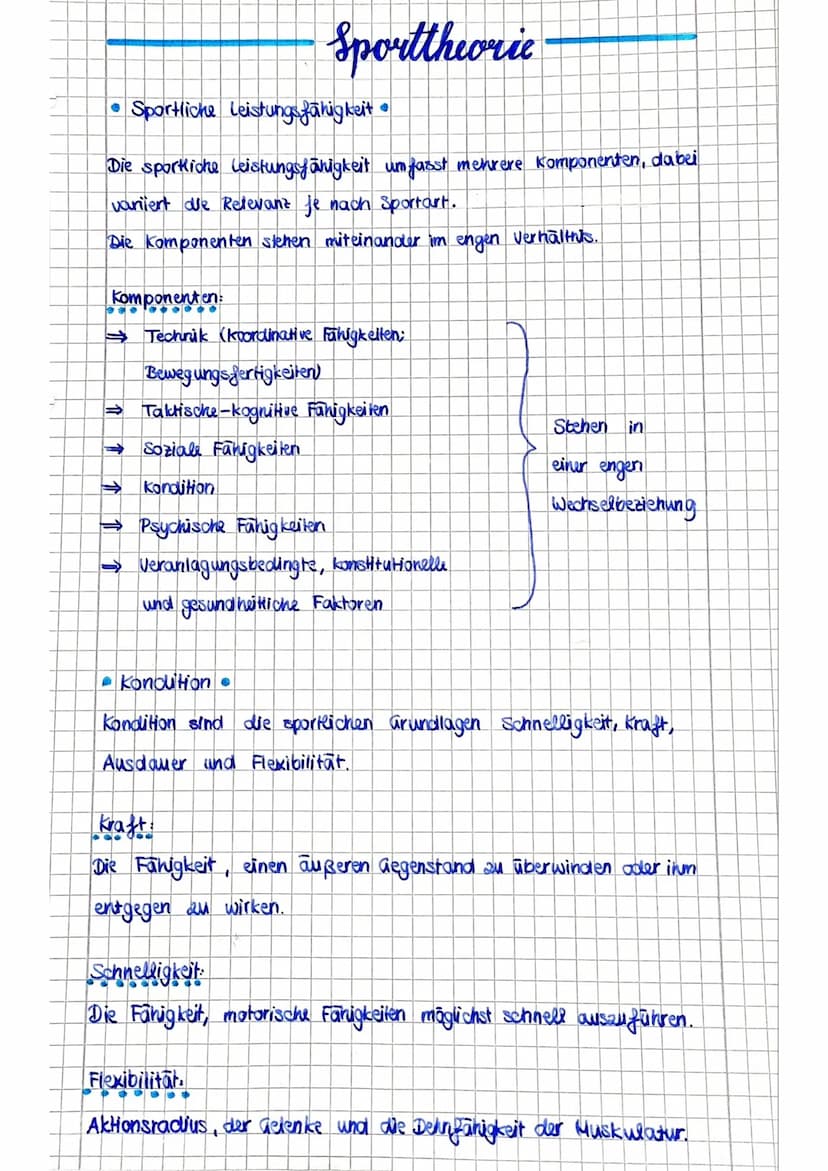 Sporttheorie
• Sportliche Leistungsfähigkeit •
Die sportliche Leistungsfähigkeit umfasst mehrere Komponenten, dabei
variiert die Relevanz je nach Sportart.
Die Komponenten stehen miteinander im engen Verhältnis.
Komponenten:
⇒ Technik (koordinative Fähigkeiten;
Bewegungsfertigkeiten)
⇒ Taktische-kognitive Fähigkeiten
⇒ Soziale Fähigkeiten
⇒ Kondition
⇒ Psychische Fähigkeiten
⇒ Veranlagungsbedingte, konstitutionelle
und gesundheitliche Faktoren
Stehen in
einer engen
Wechselbeziehung
• Kondition •
Kondition sind die sportlichen Grundlagen Schnelligkeit, Kraft,
Ausdauer und Flexibilität.
Kraft:
Die Fähigkeit, einen äußeren Gegenstand zu überwinden oder ihm
entgegen zu wirken.
Schnelligkeit:
Die Fähigkeit, motorische Fähigkeiten möglichst schnell auszuführen.
Flexibilität:
Aktionsradius, der Gelenke und die Dehnfähigkeit der Muskulatur.